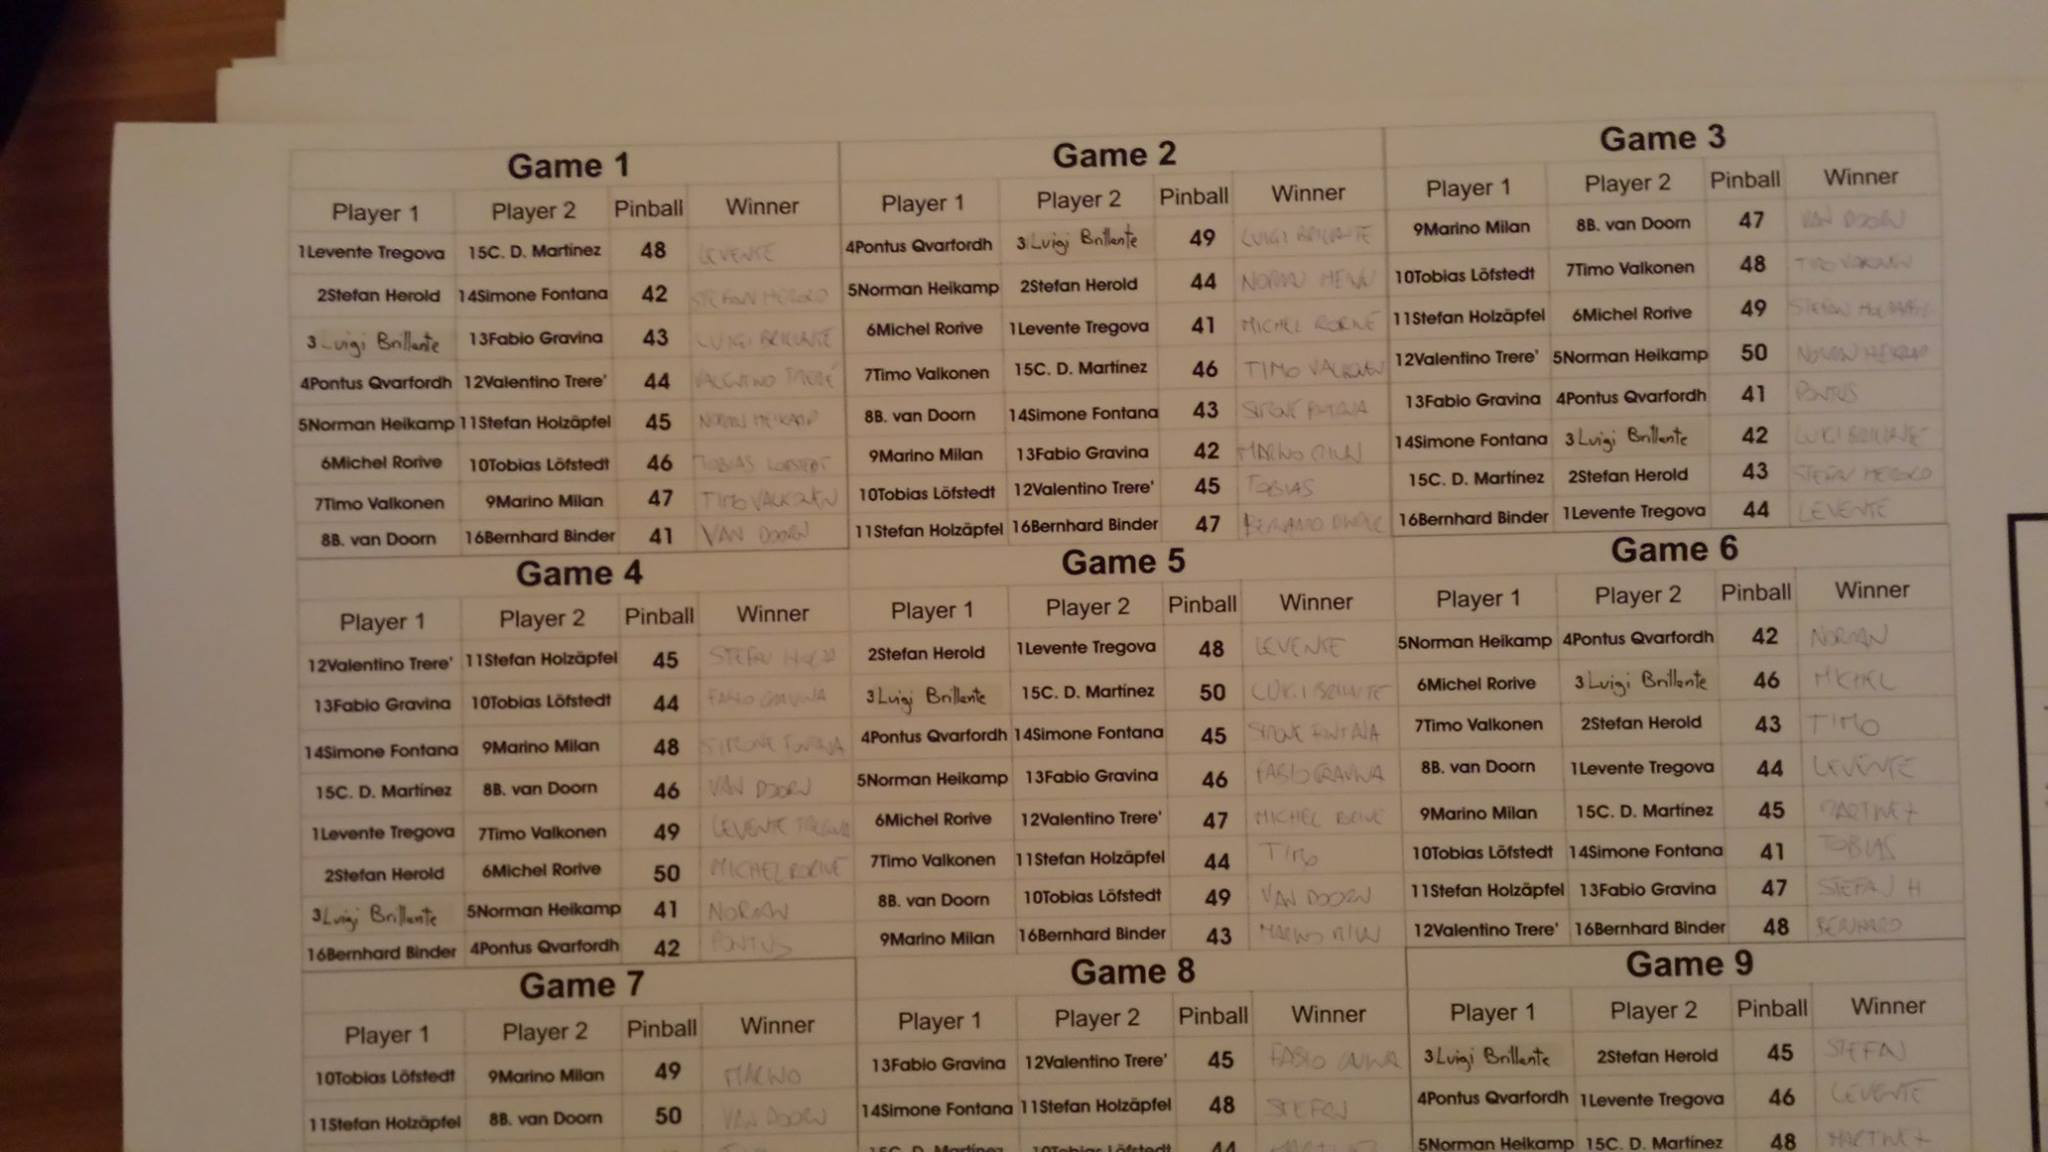 Game 1
Player 1 Player 2 Pinball Winner
1Levente Tregova 15C. D. Martínez 48 LEVENTE
2Stefan Herold 14Simone Fontana 42 STEFAN HEROLD
3 Luigi Brillante 13Fabio Gravina 43 LUIGI BRILLANTE
4Pontus Qvarfordh 12Valentino Trere' 44 VALENTINO TRERE'
5Norman Heikamp 11Stefan Holzäpfel 45 NORMAN HEIKAMP
6Michel Rorive 10Tobias Löfstedt 46 TOBIAS LOFSTEDT
7Timo Valkonen 9Marino Milan 47 TIMO VALKONEN
8B. van Doorn 16Bernhard Binder 41 VAN DOORN
Game 2
Player 1 Player 2 Pinball Winner
4Pontus Qvarfordh 3 Luigi Brillante 49 LUIGI BRILLANTE
5Norman Heikamp 2Stefan Herold 44 NORMAN
6Michel Rorive 1Levente Tregova 41 MICHEL RORIVE
7Timo Valkonen 15C. D. Martínez 46 TIMO VALKONEN
8B. van Doorn 14Simone Fontana 43 SIMONE FONTANA
9Marino Milan 13Fabio Gravina 42 MARINO MILAN
10Tobias Löfstedt 12Valentino Trere' 45 TOBIAS
11Stefan Holzäpfel 16Bernhard Binder 47 BERNHARD BINDER
Game 3
Player 1 Player 2 Pinball Winner
9Marino Milan 8B. van Doorn 47 VAN DOORN
10Tobias Löfstedt 7Timo Valkonen 48 TIMO VALKONEN
11Stefan Holzäpfel 6Michel Rorive 49 STEFAN HOLZAPFEL
12Valentino Trere' 5Norman Heikamp 50 NORMAN HEIKAMP
13Fabio Gravina 4Pontus Qvarfordh 41 PONTUS
14Simone Fontana 3 Luigi Brillante 42 LUIGI BRILLANTE
15C. D. Martínez 2Stefan Herold 43 STEFAN HEROLD
16Bernhard Binder 1Levente Tregova 44 LEVENTE
Game 4
Player 1 Player 2 Pinball Winner
12Valentino Trere' 11Stefan Holzäpfel 45 STEFAN
13Fabio Gravina 10Tobias Löfstedt 44 FABIO GRAVINA
14Simone Fontana 9Marino Milan 48 SIMONE FONTANA
15C. D. Martínez 8B. van Doorn 46 VAN DOORN
1Levente Tregova 7Timo Valkonen 49 LEVENTE TREGOVA
2Stefan Herold 6Michel Rorive 50 MICHEL RORIVE
3 Luigi Brillante 5Norman Heikamp 41 NORMAN
16Bernhard Binder 4Pontus Qvarfordh 42 PONTUS
Game 5
Player 1 Player 2 Pinball Winner
2Stefan Herold 1Levente Tregova 48 LEVENTE
3 Luigi Brillante 15C. D. Martínez 50 LUIGI BRILLANTE
4Pontus Qvarfordh 14Simone Fontana 45 SIMONE FONTANA
5Norman Heikamp 13Fabio Gravina 46 FABIO GRAVINA
6Michel Rorive 12Valentino Trere' 47 MICHEL
7Timo Valkonen 11Stefan Holzäpfel 44 TIMO
8B. van Doorn 10Tobias Löfstedt 49 VAN DOORN
9Marino Milan 16Bernhard Binder 43 MARINO MILAN
Game 6
Player 1 Player 2 Pinball Winner
5Norman Heikamp 4Pontus Qvarfordh 42 NORMAN
6Michel Rorive 3 Luigi Brillante 46 MICHEL
7Timo Valkonen 2Stefan Herold 43 TIMO
8B. van Doorn 1Levente Tregova 44 LEVENTE
9Marino Milan 15C. D. Martínez 45 MARTINEZ
10Tobias Löfstedt 14Simone Fontana 41 TOBIAS
11Stefan Holzäpfel 13Fabio Gravina 47 STEFAN H
12Valentino Trere' 16Bernhard Binder 48 BERNHARD
Game 7
Player 1 Player 2 Pinball Winner
10Tobias Löfstedt 9Marino Milan 49 MARINO
11Stefan Holzäpfel 8B. van Doorn 50 VAN DOORN
Game 8
Player 1 Player 2 Pinball Winner
13Fabio Gravina 12Valentino Trere' 45 FABIO
14Simone Fontana 11Stefan Holzäpfel 48 STEFAN
15C. D. Martínez 10Tobias Löfstedt 44 MARTINEZ
Game 9
Player 1 Player 2 Pinball Winner
3 Luigi Brillante 2Stefan Herold 45 STEFAN
4Pontus Qvarfordh 1Levente Tregova 46 LEVENTE
5Norman Heikamp 15C. D. Martínez 48 MARTINEZ